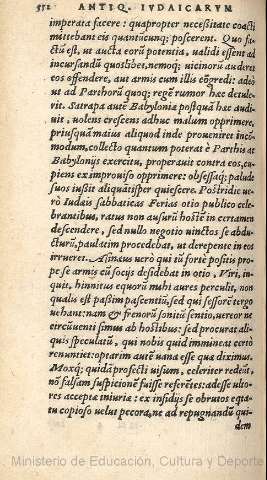 572 ANTIQ. IVDAICARVM
imperata facere: quapropter necessitate coacti
mittebant eis quantũcunq; poscerent. Quo fa-
ctũ est, ut aucta eorũ potentia, ualidi essent ad
incursandũ quoslibet, nemoq; uicinorũ auderet
eos offendere, aut armis cum illis cõgredi: adeò
ut ad Parthorũ quoq; regẽ rumor hæc detule-
rit. Satrapa autẽ Babylonia postquã hæc audi-
uit, uolens crescens adhuc malum opprimere,
priusquã maius aliquod inde proueniret incõ-
modum, collecto quantum poterat è Parthis at
Babylonijs exercitu, properauit contra eos, cu-
piens ex improuiso opprimere: obsessaq; palude
suos iussit aliquātisper quiescere. Postridie ue-
rò Iudais sabbaticas Ferias otio publico cele-
brantibus, ratus non ausurũ hostẽ in certamen
descendere, sed nullo negotio uinctos se abdu-
cturũ, paulatim procedebat, ut derepente in eos
irrueret. Asinæus uerò qui tũ fortè positis pro-
pe se armis cũ socijs desidebat in otio, Viri, in-
quit, hinnitus equorũ mihi aures perculit, non
qualis est passim pascentiũ, sed qui sessorẽ terga
uehant: nam & frenorũ sonitũ sentio, uereor ne
circũuenti simus ab hostibus: sed procurat ali-
quis speculatũ, qui nobis quid immineat certò
renuntiet: optarim autẽ uana esse qua diximus.
Moxq; quidã profecti uisum, celeriter redeũt,
nõ falsam suspicionẽ fuisse referẽtes: adesse ulto-
res accepta iniuria: ex insidijs se obrutos eqta-
tu copioso uelut pecora, ne ad repugnandũ qui-
dem
Ministerio de Educación, Cultura y Deporte